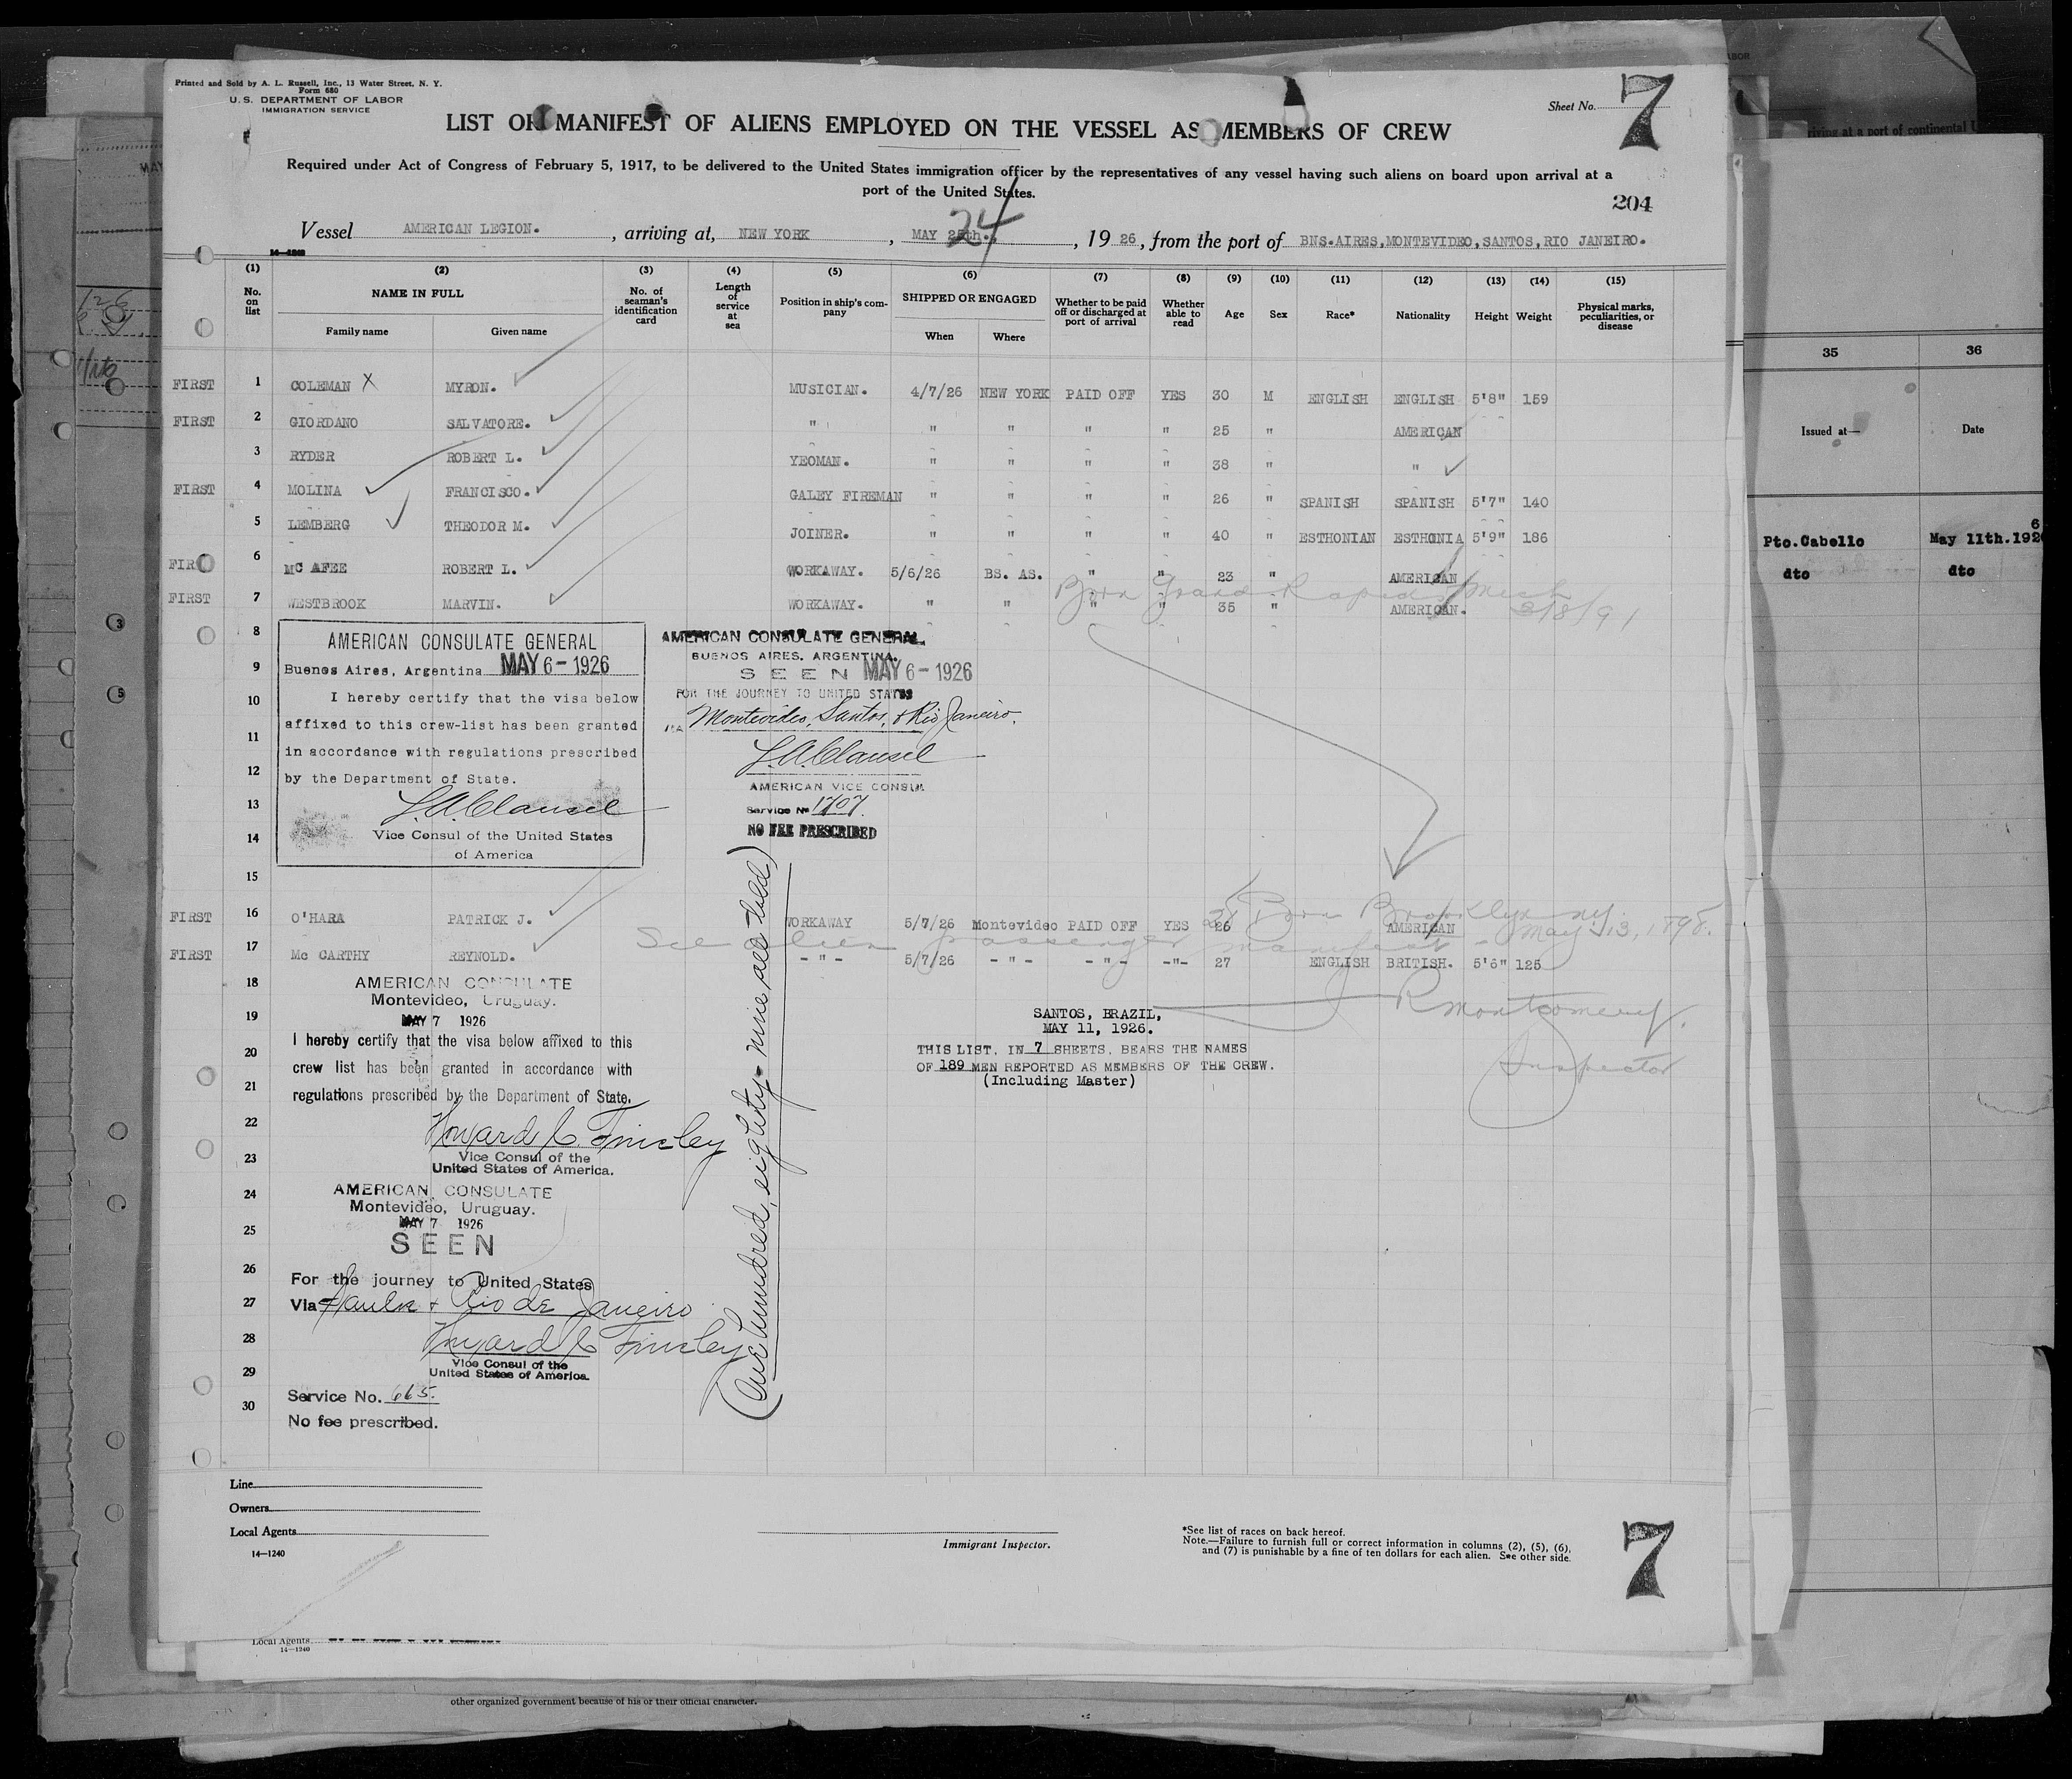 Printed and Sold by A. L. Russell, Inc., 13 Water Street, N. Y.
Form 680
U. S. DEPARTMENT OF LABOR
IMMIGRATION SERVICE
Sheet No. 7
LIST OR MANIFEST OF ALIENS EMPLOYED ON THE VESSEL AS MEMBERS OF CREW
Required under Act of Congress of February 5, 1917, to be delivered to the United States immigration officer by the representatives of any vessel having such aliens on board upon arrival at a
port of the United States.
204
Vessel AMERICAN LEGION. , arriving at, NEW YORK , MAY 24 25th. , 19 26, from the port of BNS.AIRES,MONTEVIDEO,SANTOS,RIO JANEIRO.
14—1240
(1) (2) (3) (4) (5) (6) (7) (8) (9) (10) (11) (12) (13) (14) (15)
No. on list NAME IN FULL Family name Given name No. of seaman's identification card Length of service at sea Position in ship's company SHIPPED OR ENGAGED When Where Whether to be paid off or discharged at port of arrival Whether able to read Age Sex Race* Nationality Height Weight Physical marks, peculiarities, or disease
FIRST 1 COLEMAN X MYRON. MUSICIAN. 4/7/26 NEW YORK PAID OFF YES 30 M ENGLISH ENGLISH 5'8" 159
FIRST 2 GIORDANO SALVATORE. " " " " " 25 " AMERICAN
3 RYDER ROBERT L. YEOMAN. " " " " 38 " "
FIRST 4 MOLINA FRANCISCO. GALEY FIREMAN " " " " 26 " SPANISH SPANISH 5'7" 140
5 LEMBERG THEODOR M. JOINER. " " " " 40 " ESTHONIAN ESTHONIA 5'9" 186
FIRST 6 MC AFEE ROBERT L. WORKAWAY. 5/6/26 BS. AS. " " 23 " AMERICAN
Born Grand Rapids Mich 3/8/91
FIRST 7 WESTBROOK MARVIN. WORKAWAY. " " " " 35 " AMERICAN.
8
9
10
11
12
13
14
15
AMERICAN CONSULATE GENERAL
Buenos Aires, Argentina MAY 6 - 1926
I hereby certify that the visa below
affixed to this crew-list has been granted
in accordance with regulations prescribed
by the Department of State.
Vice Consul of the United States
of America
AMERICAN CONSULATE GENERAL
BUENOS AIRES, ARGENTINA.
SEEN MAY 6 - 1926
FOR THE JOURNEY TO UNITED STATES
VIA Montevideo, Santos, & Rio Janeiro.
AMERICAN VICE CONSUL
Service No 1707.
NO FEE PRESCRIBED
(One hundred, eighty-nine, all told)
FIRST 16 O'HARA PATRICK J. WORKAWAY 5/7/26 Montevideo PAID OFF YES 26 28 AMERICAN
Born Brooklyn NY. May 13, 1898.
See alien passenger manifest -
FIRST 17 Mc CARTHY REYNOLD. - " - 5/7/26 - " - - " - -"- 27 ENGLISH BRITISH. 5'6" 125
J R Montgomery.
Inspector
18
19
20
21
22
23
24
25
26
27
28
29
30
AMERICAN CONSULATE
Montevideo, Uruguay.
MAY 7 1926
I hereby certify that the visa below affixed to this
crew list has been granted in accordance with
regulations prescribed by the Department of State.
Howard C. Tinsley
Vice Consul of the
United States of America.
SANTOS, BRAZIL,
MAY 11, 1926.
THIS LIST, IN 7 SHEETS, BEARS THE NAMES
OF 189 MEN REPORTED AS MEMBERS OF THE CREW.
(Including Master)
AMERICAN CONSULATE
Montevideo, Uruguay.
MAY 7 1926
SEEN
For the journey to United States
Via & Rio de Janeiro
Howard C. Tinsley
Vice Consul of the
United States of America.
Service No. 665.
No fee prescribed.
Line
Owners
Local Agents
14—1240
Immigrant Inspector.
*See list of races on back hereof.
Note.—Failure to furnish full or correct information in columns (2), (5), (6),
and (7) is punishable by a fine of ten dollars for each alien. See other side.
7
Local Agents
14—1240
other organized government because of his or their official character.
35 36
Issued at— Date
Pto.Cabello May 11th.1926
dto dto